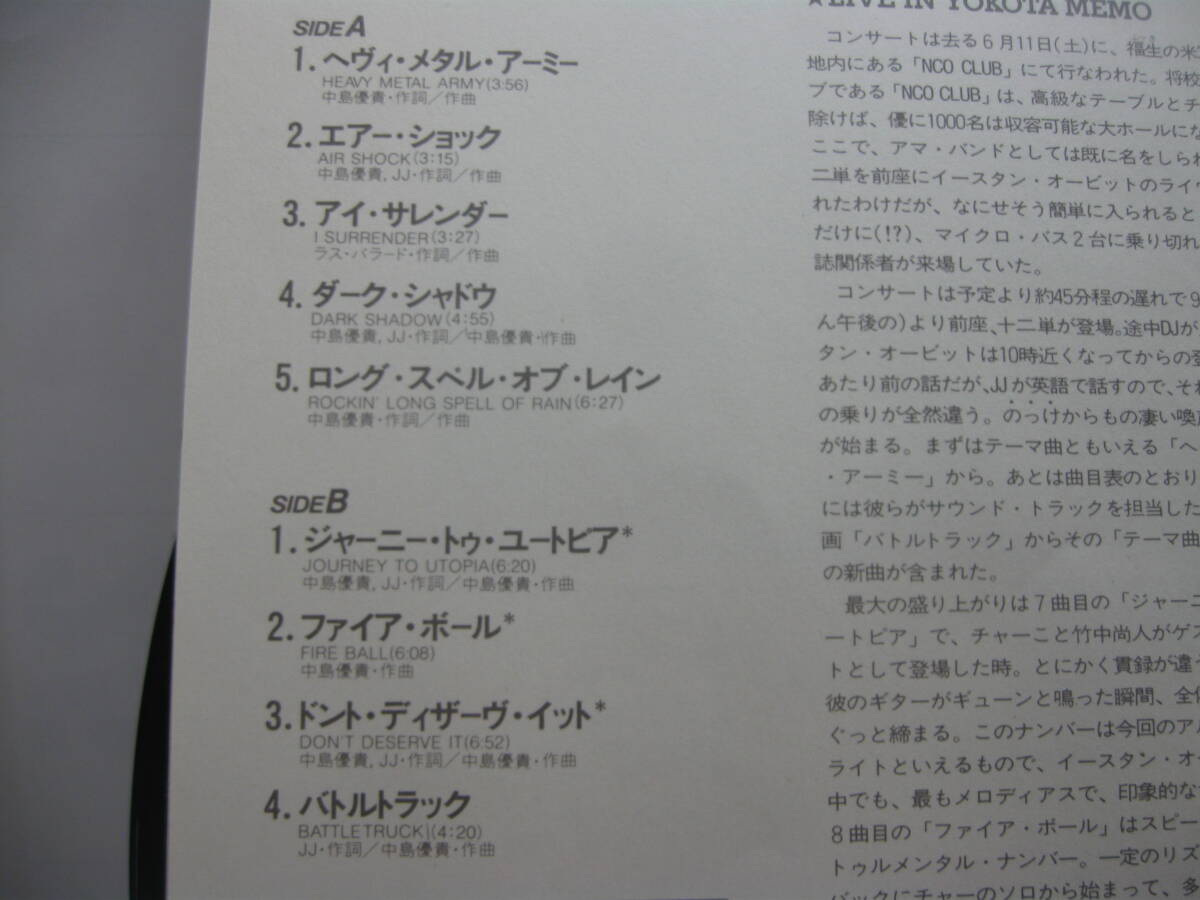 SIDE A
1. ヘヴィ・メタル・アーミー
HEAVY METAL ARMY(3:56)
中島優貴・作詞／作曲
2. エアー・ショック
AIR SHOCK(3:15)
中島優貴, JJ・作詞／作曲
3. アイ・サレンダー
I SURRENDER(3:27)
ラス・バラード・作詞／作曲
4. ダーク・シャドウ
DARK SHADOW(4:55)
中島優貴, JJ・作詞／中島優貴・作曲
5. ロング・スペル・オブ・レイン
ROCKIN' LONG SPELL OF RAIN(6:27)
中島優貴・作詞／作曲
SIDE B
1. ジャーニー・トゥ・ユートピア*
JOURNEY TO UTOPIA(6:20)
中島優貴, JJ・作詞／中島優貴・作曲
2. ファイア・ボール*
FIRE BALL(6:08)
中島優貴・作曲
3. ドント・ディザーヴ・イット*
DON'T DESERVE IT(6:52)
中島優貴, JJ・作詞／中島優貴・作曲
4. バトルトラック
BATTLE TRUCK(4:20)
JJ・作詞／中島優貴・作曲
★LIVE IN YOKOTA MEMO
コンサートは去る6月11日(土)に、福生の米
地内にある「NCO CLUB」にて行なわれた。将校
ブである「NCO CLUB」は、高級なテーブルとチ
除けば、優に1000名は収容可能な大ホールにな
ここで、アマ・バンドとしては既に名をしられ
二単を前座にイースタン・オービットのライヴ
れたわけだが、なにせそう簡単に入られると
だけに(!?)、マイクロ・バス2台に乗り切れ
誌関係者が来場していた。
コンサートは予定より約45分程の遅れで9
ん午後の)より前座、十二単が登場。途中DJが
タン・オービットは10時近くなってからの登
あたり前の話だが、JJが英語で話すので、それ
の乗りが全然違う。のっけからもの凄い喚声
が始まる。まずはテーマ曲ともいえる「ヘ
・アーミー」から。あとは曲目表のとおり
には彼らがサウンド・トラックを担当した
画「バトルトラック」からその「テーマ曲
の新曲が含まれた。
最大の盛り上がりは7曲目の「ジャーニ
ートピア」で、チャーこと竹中尚人がゲス
トとして登場した時。とにかく貫録が違う
彼のギターがギューンと鳴った瞬間、全体
ぐっと締まる。このナンバーは今回のアル
ライトといえるもので、イースタン・オー
中でも、最もメロディアスで、印象的な
8曲目の「ファイア・ボール」はスピー
トゥルメンタル・ナンバー。一定のリズ
バックにチャーのソロから始まって、多